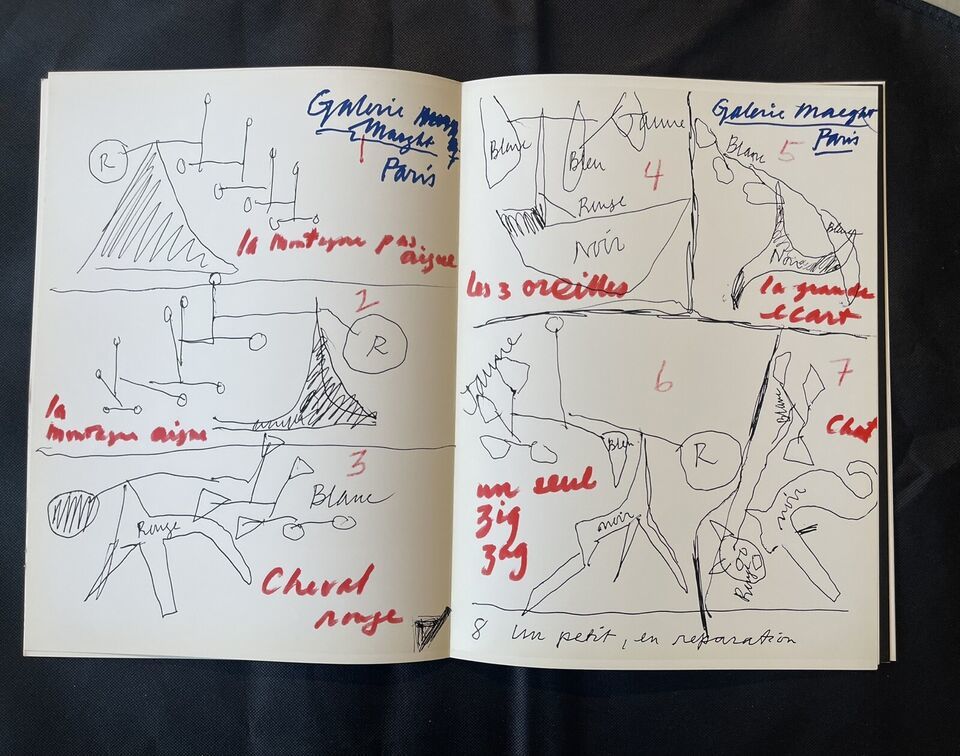 Galerie
Maeght
Paris
1
R
la montagne pas
aigue
2
R
la
montagne aigue
3
Rouge
Blanc
Cheval
rouge
Galerie Maeght
Paris
Blanc
Bleu
Jaune
4
Rouge
Noir
les 3 oreilles
Blanc
5
Blanc
Noir
la grande
ecart
Jaune
6
Bleu
R
noir
un seul
zig
zag
7
Blanc
Chat
noir
Rouge
8 Un petit, en reparation